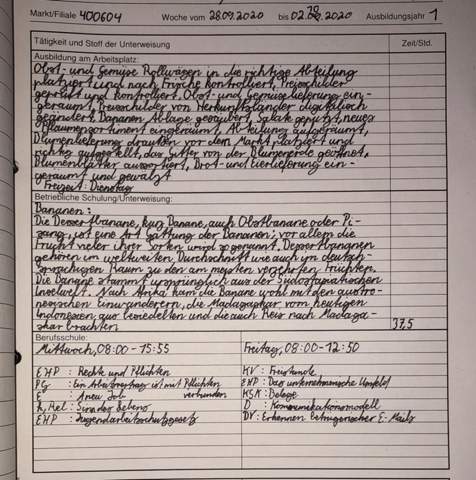 Markt/Filiale 400604 Woche vom 28.09.2020 bis 02.10.2020 Ausbildungsjahr 1
Tätigkeit und Stoff der Unterweisung Zeit/Std.
Ausbildung am Arbeitsplatz:
Obst- und Gemüse Rollwägen in die richtige Abteilung
platziert und nach Frische kontrolliert, Preisschilder
geprüft und kontrolliert, Obst- und Gemüselieferung ein-
geräumt, Preisschilder von Herkunftsländer digitalisch
geändert, Bananen Ablage gesäubert, Salat geputzt, neues
Pflaumensortiment eingeräumt, Abteilung aufgeräumt,
Blumenlieferung draußen vor dem Markt platziert und
richtig aufgestellt, das Gitter von der Blumenerde geöffnet,
Blumenblätter aussortiert, Brot- und Eierlieferung ein-
geräumt und gewälzt
Freizeit: Dienstag
Betriebliche Schulung/Unterweisung:
Bananen:
Die Dessertbanane, kurz Banane, auch Obstbanane oder Pi-
sang, ist eine Art Gattung der Bananen; vor allem die
Frucht vieler ihrer Sorten wird so genannt. Dessertbananen
gehören im weltweiten Durchschnitt wie auch im deutsch-
sprachigen Raum zu den am meisten verzehrten Früchten.
Die Banane stammt ursprünglich aus der Südostasiatischen
Inselwelt. Nach Afrika kam die Banane wohl mit den austro-
nesischen Einwanderern, die Madagaskar vom heutigen
Indonesien aus besiedelten und die auch Reis nach Madaga-
skar brachten 37,5
Berufsschule:
Mittwoch, 08:00-15:55 Freitag, 08:00-12:50
EHP : Rechte und Pflichten KV : Preistunde
PG : Ein Arbeitsvertrag ist mit Pflichten verbunden EHP : Das unternehmerische Umfeld
E : A new Job KSK : Belege
K, Rel : Sinn des Lebens D : Kommunikationsmodell
EHP : Jugendarbeitsschutzgesetz DV : Erkennen Betrügerischer E-Mails